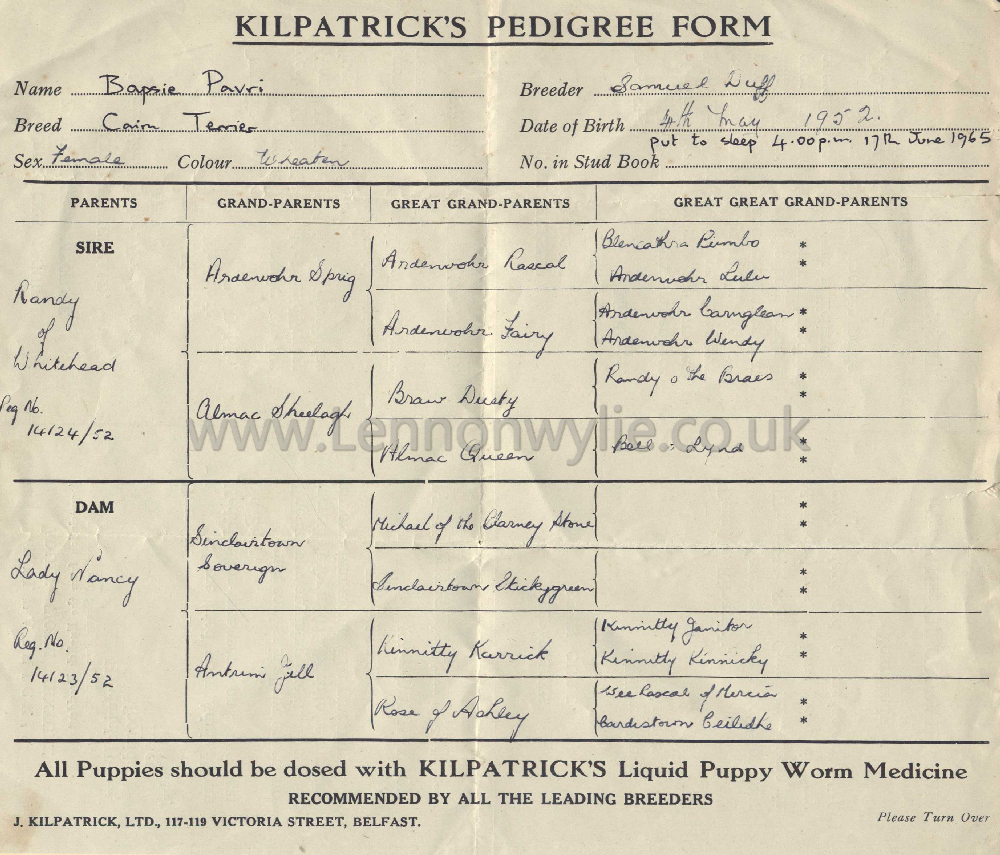 KILPATRICK'S PEDIGREE FORM
Name Bapsie Pavri
Breeder Samuel Duff
Breed Cairn Terrier
Date of Birth 4th May 1952.
put to sleep 4.00p.m. 17th June 1965
Sex Female Colour Wheaten
No. in Stud Book
PARENTS GRAND-PARENTS GREAT GRAND-PARENTS GREAT GREAT GRAND-PARENTS
SIRE
Randy
of
Whitehead
Reg No.
14124/52
Ardenwohr Sprig
Almac Sheelagh
Ardenwohr Rascal
Ardenwohr Fairy
Braw Dusty
Almac Queen
Blencathra Rumbo *
Ardenwohr Lulu *
Ardenwohr Cairnglean *
Ardenwohr Wendy *
Randy o the Braes *
*
Bell Lynd *
*
www.Lennonwylie.co.uk
DAM
Lady Nancy
Reg. No.
14123/52
Sinclairtown
Soverign
Antrim Jill
Michael of the Clarney Stone
Sinclairtown Stickygreen
Kinnitty Karrick
Rose of Ashley
*
*
*
*
Kinnitty Janitor *
Kinnitty Kinnicky *
Wee Rascal of Mercia *
Ceilidhe *
All Puppies should be dosed with KILPATRICK'S Liquid Puppy Worm Medicine
RECOMMENDED BY ALL THE LEADING BREEDERS
J. KILPATRICK, LTD., 117-119 VICTORIA STREET, BELFAST.
Please Turn Over